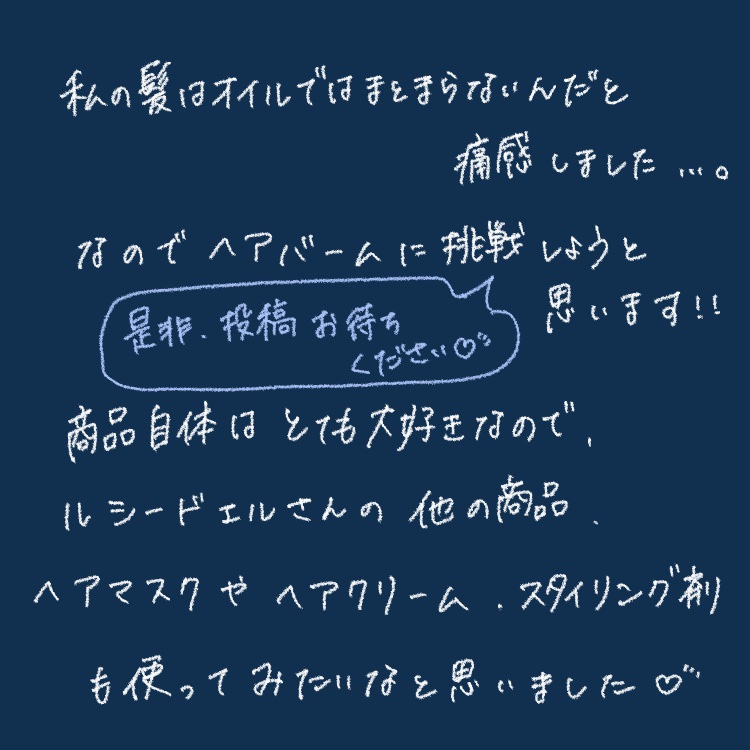 私の髪はオイルではまとまらないんだと
痛感しました…。
なのでヘアバームに挑戦しようと
思います!!
是非、投稿お待ち
ください♡
商品自体はとても大好きなので、
ルシードエルさんの他の商品、
ヘアマスクやヘアクリーム、スタイリング剤
も使ってみたいなと思いました♡